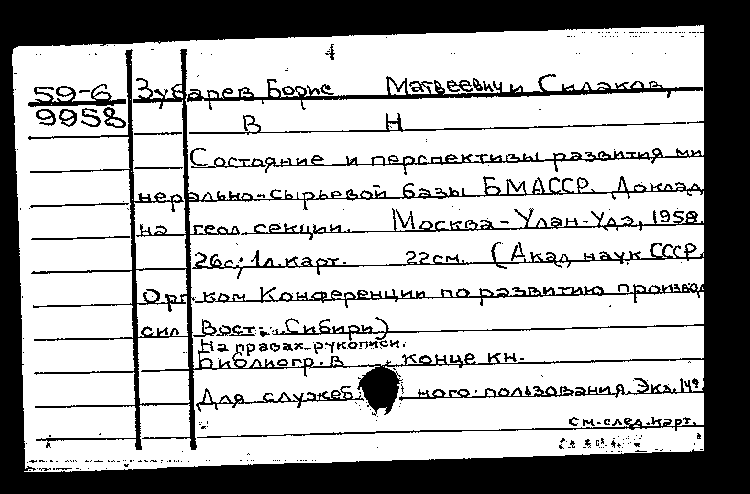 4
59-6 Зубарев, Борис Матвеевич и Силаков,
9958 В Н
Состояние и перспективы развития ми
нерально-сырьевой базы БМАССР. Доклад
на геол. секции. Москва - Улан-Удэ, 1958.
26с; 1л. карт. 22см. (Акад. наук СССР.
Орг. ком Конференции по развитию производ
сил Вост. Сибири)
На правах рукописи.
Библиогр. в конце кн.
Для служебного пользования. Экз. 149
см. след. карт.